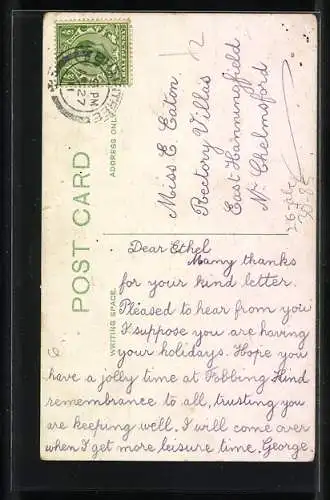 POST CARD
ADDRESS ONLY
WRITING SPACE.
PM
27
Miss E. Eaton
Rectory Villas
East Hanningfield
Nr. Chelmsford
Dear Ethel
Many thanks
for your kind letter.
Pleased to hear from you
I suppose you are having
your holidays. Hope you
have a jolly time at Fobbing Kind
remembrance to all, trusting you
are keeping well. I will come over
when I get more leisure time. George.